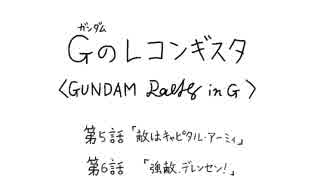 ガンダム
Gのレコンギスタ
〈GUNDAM Reco in G〉
第5話「敵はキャピタル・アーミィ」
第6話 「強敵、デレンセン!」